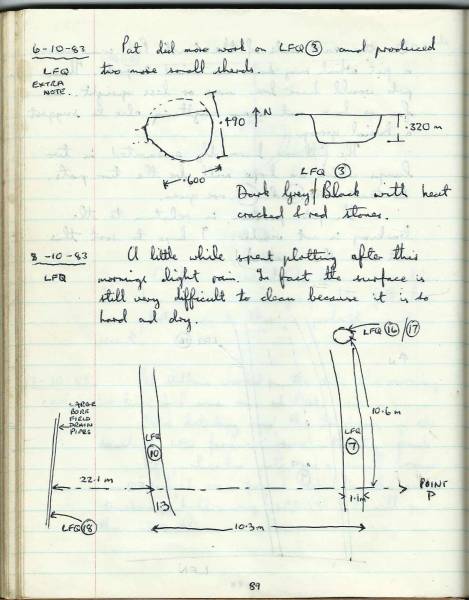 6-10-83 Pat did more work on LFQ ③ and produced
LFQ two more small sherds.
EXTRA
NOTE.
.490 ↑N
.320m
.600
LFQ ③
Dark Grey/Black with heat
cracked & red stones.
8-10-83 A little while spent plotting after this
LFQ mornings slight rain. In fact the surface is
still very difficult to clean because it is so
hard and dry.
LFQ ⑯/⑰
LARGE
BORE
FIELD
DRAIN
PIPES
10.6m
LFQ
⑩
LFQ
⑦
22.1m
POINT
P
1.3
1.1m
LFQ ⑱
10.3m
89